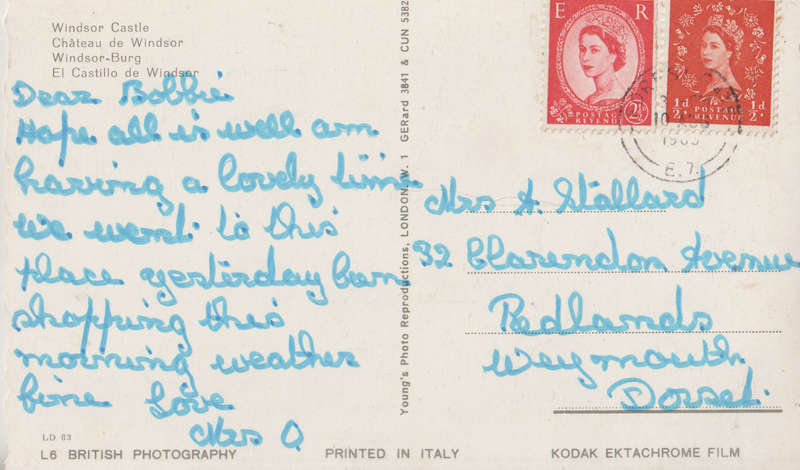 Windsor Castle
Château de Windsor
Windsor-Burg
El Castillo de Windsor
Dear Bobbie
Hope all is well am
having a lovely time
We went to this
place yesterday been
shopping this
morning weather
fine Love
Mrs O
LD 83
L6 BRITISH PHOTOGRAPHY
PRINTED IN ITALY
KODAK EKTACHROME FILM
Young's Photo Reproductions, LONDON, W. 1 GERrard 3841 & CUN 5382
E R
POSTAGE
REVENUE
2½D
½d ½d
POSTAGE
REVENUE
10 AUG
E.7.
Mrs A. Stallard
32 Clarendon Avenue
Redlands
Weymouth
Dorset.